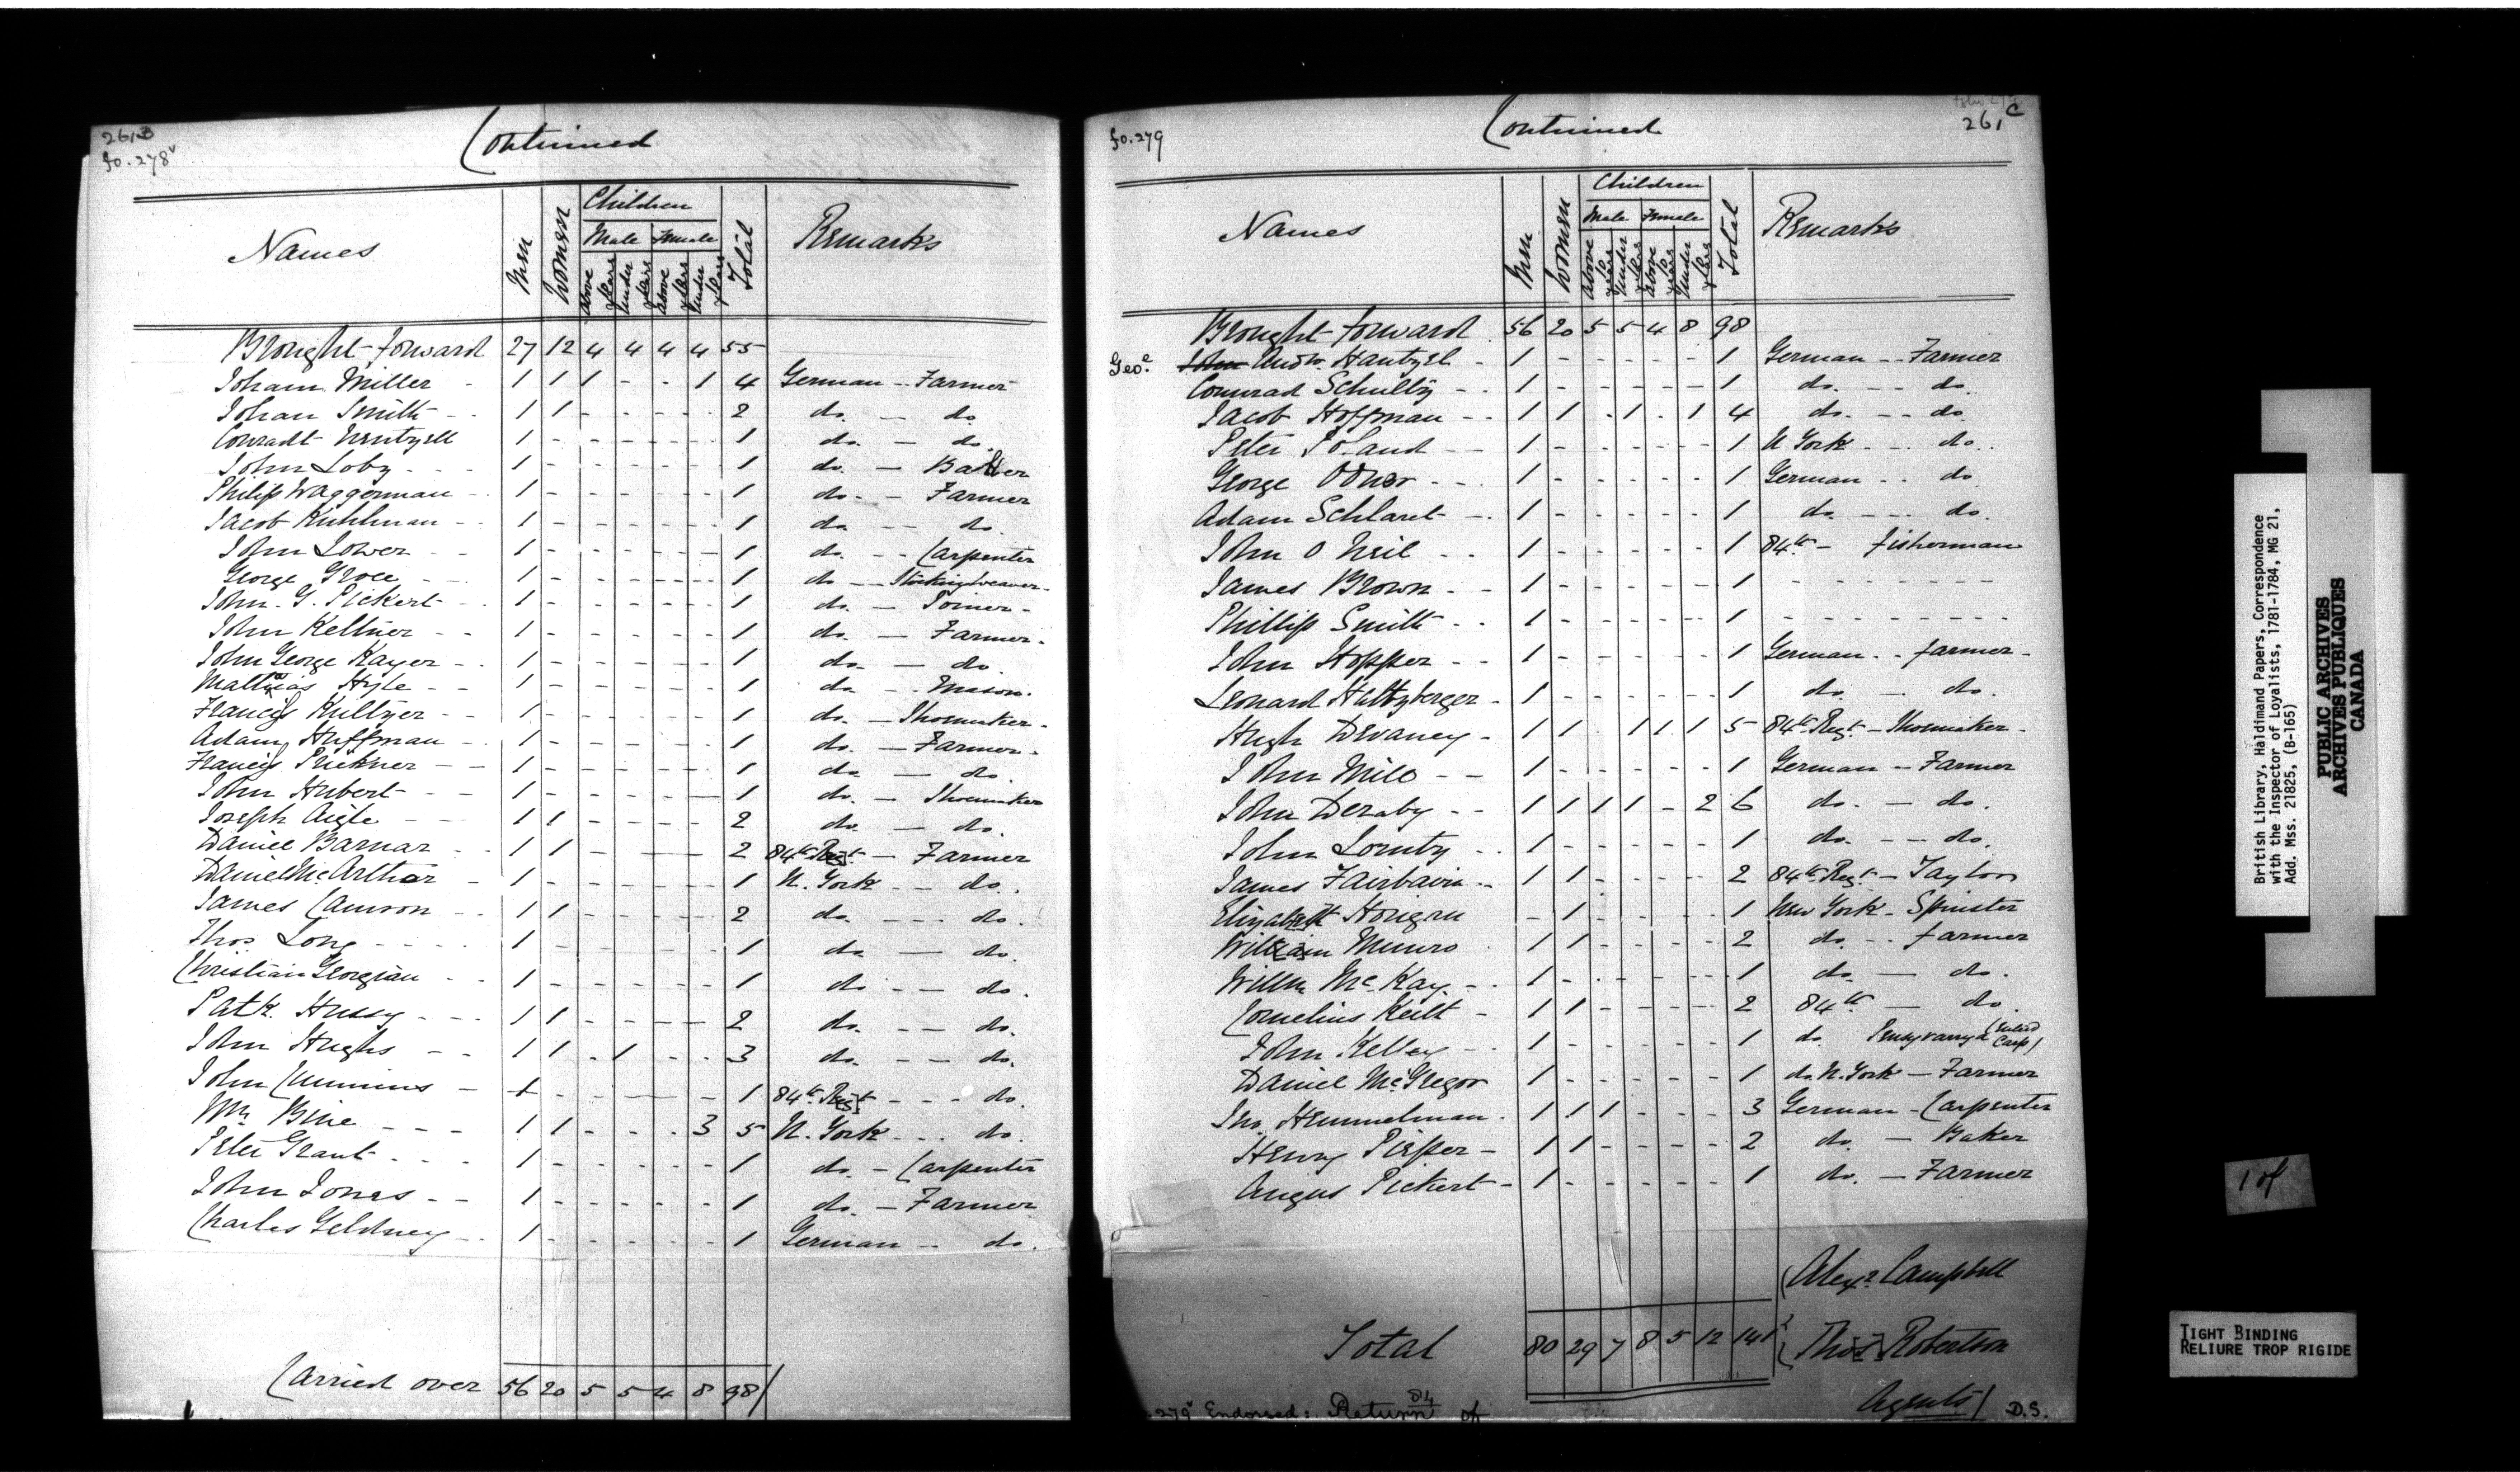 261B
fo. 278v
Continued
Names Men Women Children Total Remarks
Male Female
above 10 years under 10 years above 10 years under 10 years
Brought forward 27 12 4 4 4 4 55
Joham Miller - 1 1 1 - - 1 4 German -- Farmer
Johan Smith - - 1 1 - - - - 2 do. - do.
Conradt Wentzell 1 - - - - - 1 do. - do.
John Loby - - - 1 - - - - - 1 do. - Barber
Philip Waggerman - 1 - - - - - 1 do. - Farmer
Jacob Kuhlman - 1 - - - - - 1 do. - do.
John Lower - - 1 - - - - - 1 do. - - Carpenter
George Groce - - 1 - - - - - 1 do - Stocking weaver -
John. G. Pickert - 1 - - - - - 1 do. - Joiner -
John Keltner - - 1 - - - - - 1 do. - Farmer -
John George Kayer - - 1 - - - - - 1 do. - do.
Mathias Hyle - - 1 - - - - - 1 do - - Mason.
Francis Kultzer - - 1 - - - - - 1 do. - Shoemaker -
Adam Huffman - 1 - - - - - 1 do. - Farmer -
Francis Prickner - - 1 - - - - - 1 do - do.
John Hubert - - 1 - - - - - 1 do. - Shoemaker
Joseph Aigle - - 1 1 - - - - 2 do. - do.
Daniel Barnar - - 1 1 - - - 2 84th Regt - Farmer
Daniel McArthor - 1 - - - - - 1 N. York - - do.
James Camron - - 1 1 - - - - 2 do. - - - do.
Thos Long - - - - 1 - - - - - 1 do - do.
Christian Georgian - - 1 - - - - - 1 do - - do.
Patk. Hussy - - - 1 1 - - - - 2 do. - - do.
John Hughs - - 1 1 - 1 - - 3 do. - - do.
John Cummins - 1 - - - - 1 84th Regt - - - do.
Mr Bine - - - 1 1 - - - 3 5 N. York - - - do.
Peter Grant - - - 1 - - - - - 1 do. - Carpenter
John Jones - - 1 - - - - - 1 do. - Farmer
Charles Geldney - - 1 - - - - - 1 German -- do.
Carried over 56 20 5 5 4 8 98/
fo. 279
261C
Continued
Names Men Women Children Total Remarks
Male Female
above 10 years under 10 years above 10 years under 10 years
Brought forward 56 20 5 5 4 8 98
Geoe John Andw. Hantzel - 1 - - - - - 1 German -- Farmer
Connrad Schulty - - 1 - - - - - 1 do. - - do.
Jacob Hoffman - - 1 1 - 1 - 1 4 do. - - do.
Peter Poland - - 1 - - - - - 1 N York - - do.
George Odner - - - 1 - - - - - 1 German - - do.
Adam Schlaret - - 1 - - - - - 1 do - - - do.
John O Neil - - 1 - - - - - 1 84th - fisherman
James Brown - - 1 - - - - - 1 - - - - - - -
Phillip Smith - - 1 - - - - - 1 - - - - - - -
John Hopper - - 1 - - - - - 1 German - - farmer -
Leonard Hultzberger - 1 - - - - - 1 do. - do.
Hugh Devaney - 1 1 - 1 1 1 5 84th Regt - Shoemaker -
John Mill - - 1 - - - - - 1 German - Farmer
John Deraby - - 1 1 1 1 - 2 6 do. - do.
John Lornty - - 1 - - - - - 1 do. - - do.
James Fairbairn - - 1 1 - - - - 2 84th Regt - Taylor
Elizabeth Horigan - 1 - - - - 1 New York - Spinster
William Munro - 1 1 - - - - 2 do. - - farmer
Willm McKay - - 1 - - - - - 1 do. - do.
Cornelius Keith - 1 1 - - - - 2 84th - do.
John Kelley - - 1 - - - - - 1 do.
Daniel McGregor 1 - - - - - 1 do. N. York - Farmer
Jno. Hemmelman - 1 1 1 - - - 3 German - Carpenter
Henry Pieper - 1 1 - - - - 2 do. - Baker
Angus Pickert - 1 - - - - - 1 do. - Farmer
Total 80 29 7 8 5 12 141
(Alexr Campbell
Thos Robertson
Agents/ D.S.
279v Endorsed: Return of
British Library, Haldimand Papers, Correspondence
with the Inspector of Loyalists, 1781-1784, MG 21,
Add. Mss. 21825, (B-165)
PUBLIC ARCHIVES
ARCHIVES PUBLIQUES
CANADA
1 of
TIGHT BINDING
RELIURE TROP RIGIDE